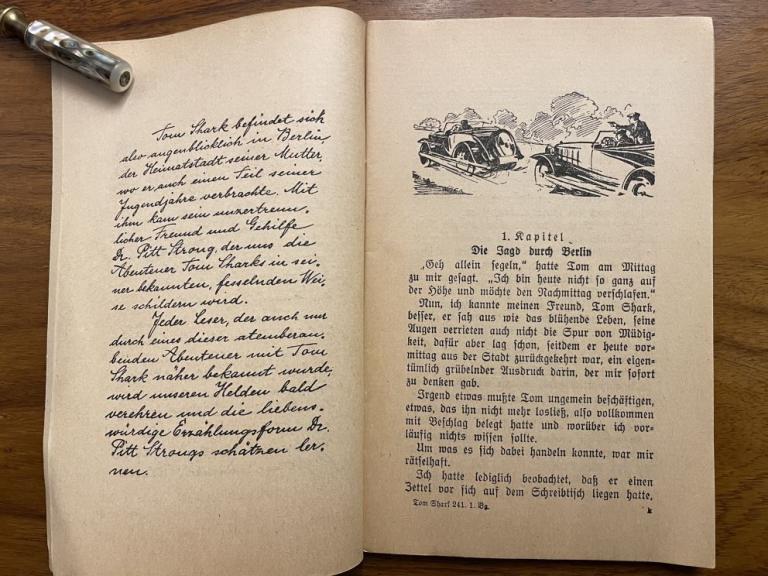 Tom Shark befindet sich
also augenblicklich in Berlin,
der Heimatstadt seiner Mutter,
wo er auch einen Teil seiner
Jugendjahre verbrachte. Mit
ihm kam sein unzertrenn-
licher Freund und Gehilfe
Dr. Pitt Strong, der uns die
Abenteuer Tom Sharks in sei-
ner bekannten, fesselnden Wei-
se schildern wird.
Jeder Leser, der auch nur
durch eines dieser atemberau-
benden Abenteuer mit Tom
Shark näher bekannt wurde,
wird unseren Helden bald
verehren und die liebens-
würdige Erzählungsform Dr.
Pitt Strongs schätzen ler-
nen.
1. Kapitel
Die Jagd durch Berlin
„Geh allein segeln,“ hatte Tom am Mittag
zu mir gesagt. „Ich bin heute nicht so ganz auf
der Höhe und möchte den Nachmittag verschlafen.“
Nun, ich kannte meinen Freund, Tom Shark,
besser, er sah aus wie das blühende Leben, seine
Augen verrieten auch nicht die Spur von Müdig-
keit, dafür aber lag schon, seitdem er heute vor-
mittag aus der Stadt zurückgekehrt war, ein eigen-
tümlich grübelnder Ausdruck darin, der mir sofort
zu denken gab.
Irgend etwas mußte Tom ungemein beschäftigen,
etwas, das ihn nicht mehr losließ, also vollkommen
mit Beschlag belegt hatte und worüber ich vor-
läufig nichts wissen sollte.
Um was es sich dabei handeln konnte, war mir
rätselhaft.
Ich hatte lediglich beobachtet, daß er einen
Zettel vor sich auf dem Schreibtisch liegen hatte,
Tom Shark 241. 1. Bg.